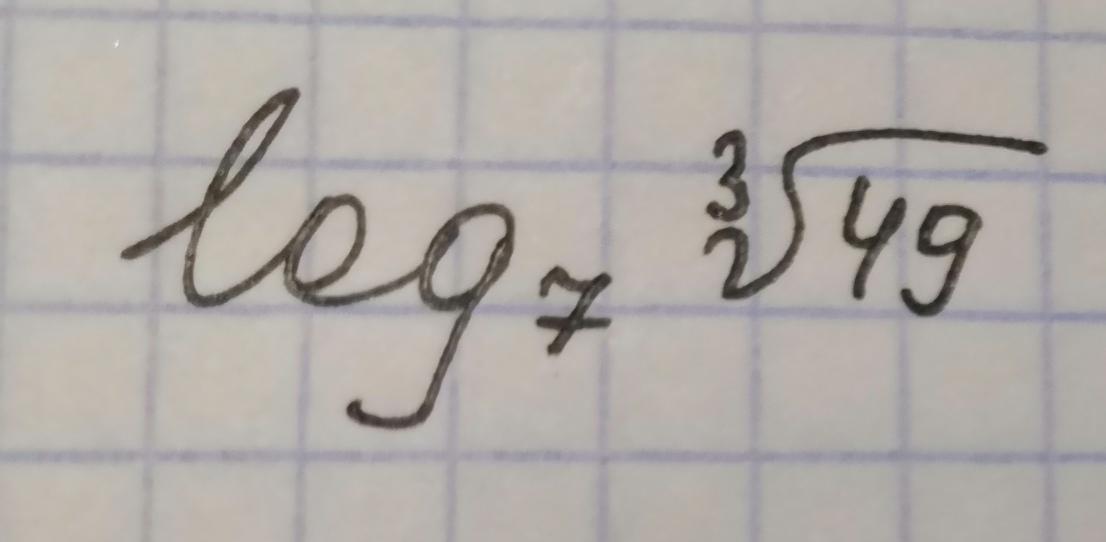 log₇ ∛49